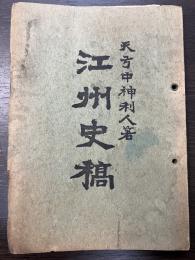 天方中神利人著
江州史稿